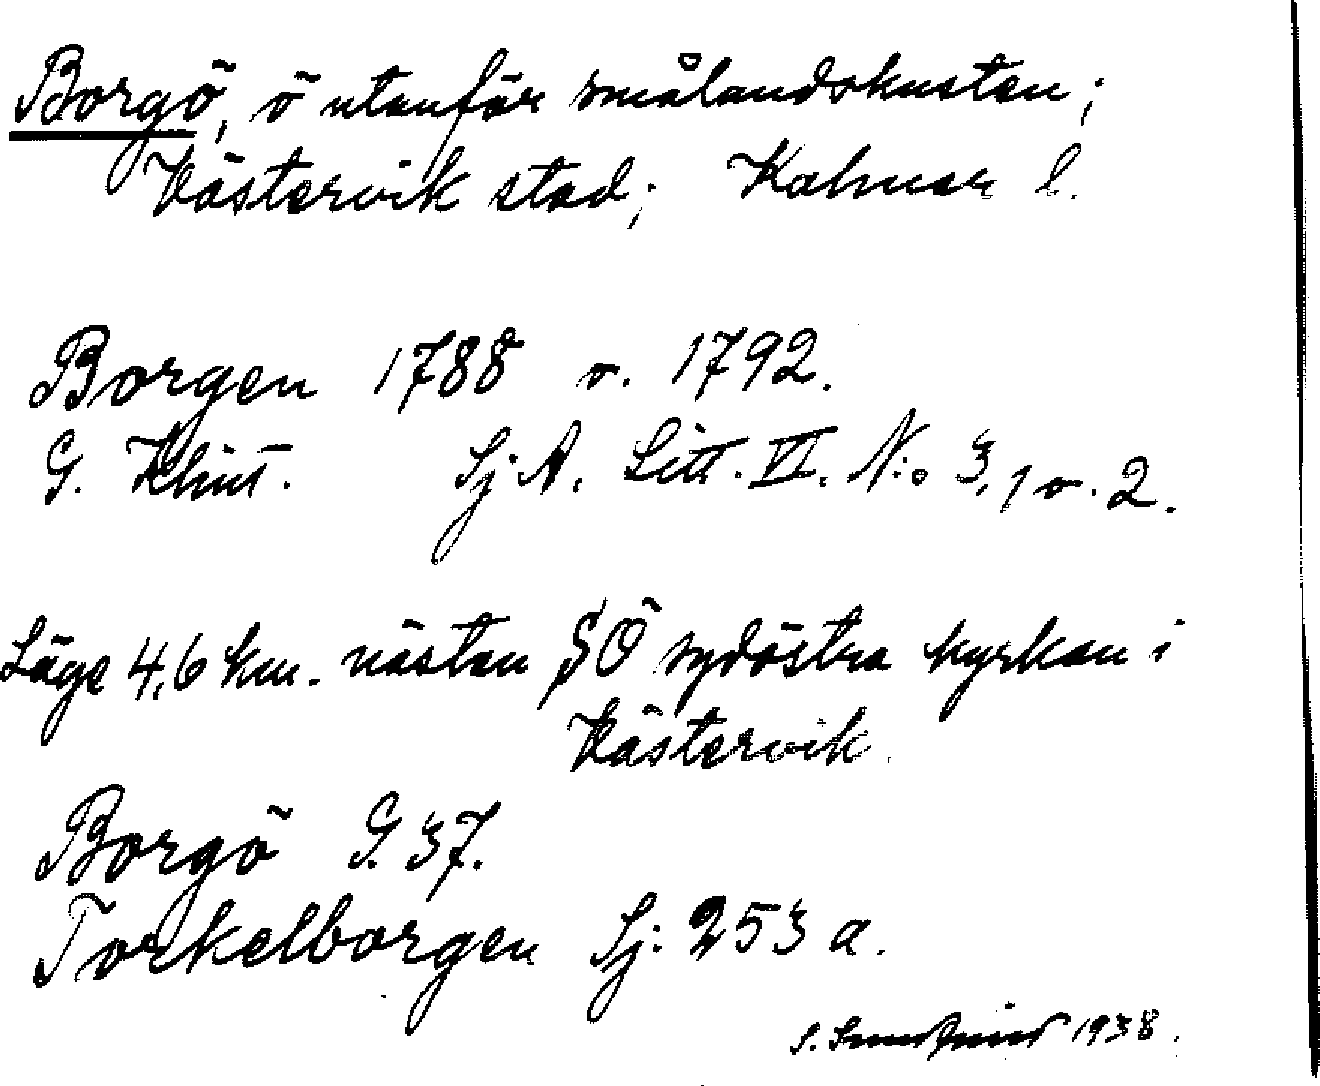 Borgö, ö utanför smålandskusten;
Västervik stad; Kalmar l.
Borgen 1788 o. 1792.
G. Klint. Sj. A. Litt. VI. N:o 3, 1 o. 2.
Läge 4,6 km. nästan SÖ sydöstra kyrkan i
Västervik.
Borgö G. 37.
Torkelborgen Sj: 253 a.
S. 1938.